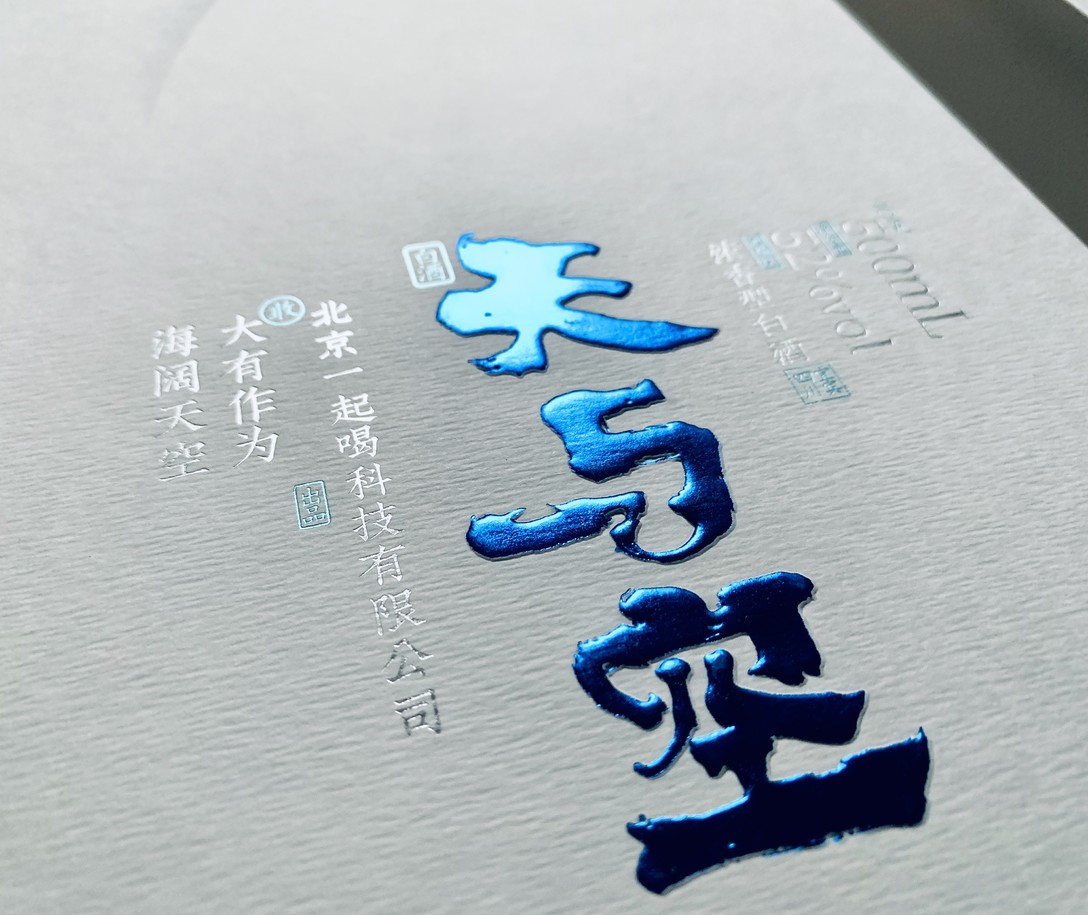 500mL
香型白酒
天与空
白酒
北京一起喝科技有限公司
出品
大有作为
海阔天空